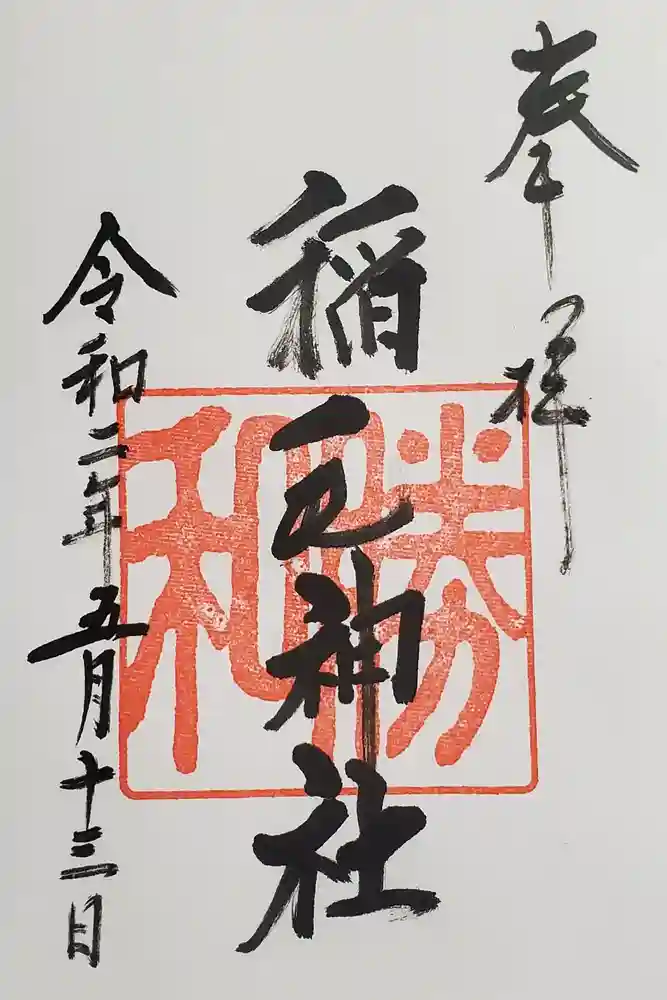 奉拝
稲毛神社
勝和
令和二年五月十三日